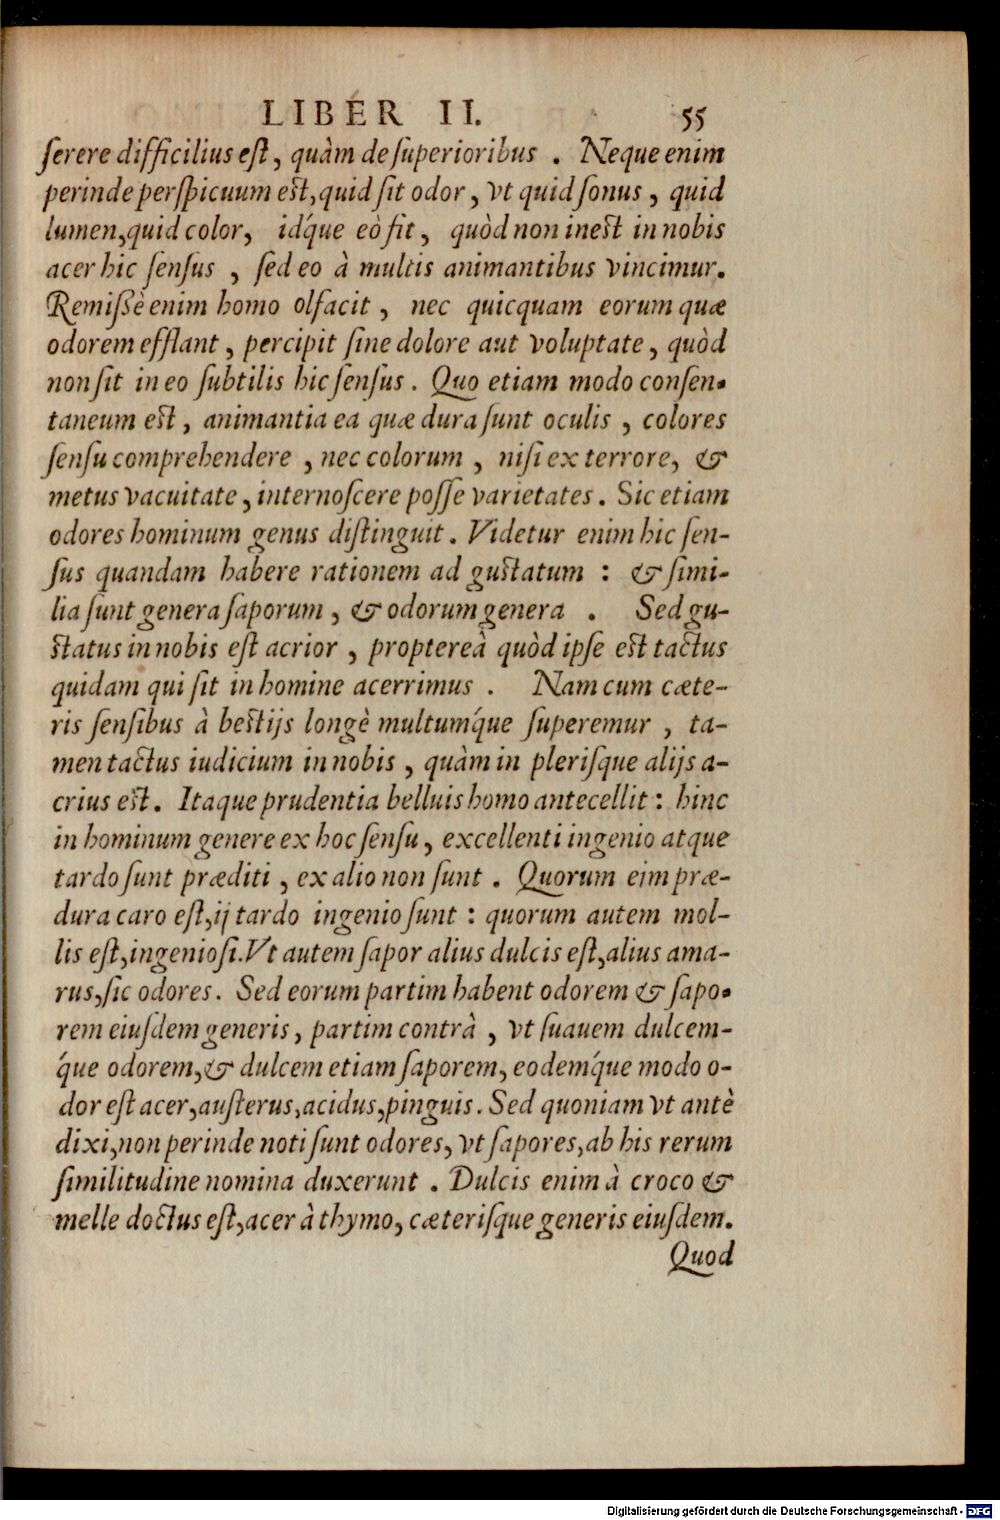 LIBER II. 55
ſerere difficilius eſt, quàm de ſuperioribus. Neque enim
perinde perſpicuum eſt, quid ſit odor, vt quid ſonus, quid
lumen, quid color, idq́ue eò fit, quòd non ineſt in nobis
acer hic ſenſus, ſed eo à multis animantibus vincimur.
Remiſsè enim homo olfacit, nec quicquam eorum quæ
odorem efflant, percipit ſine dolore aut voluptate, quòd
non ſit in eo ſubtilis hic ſenſus. Quo etiam modo conſen-
taneum eſt, animantia ea quæ dura ſunt oculis, colores
ſenſu comprehendere, nec colorum, niſi ex terrore, &
metus vacuitate, internoſcere poſſe varietates. Sic etiam
odores hominum genus diſtinguit. Videtur enim hic ſen-
ſus quandam habere rationem ad guſtatum: & ſimi-
lia ſunt genera ſaporum, & odorum genera. Sed gu-
ſtatus in nobis eſt acrior, proptereà quòd ipſe eſt tactus
quidam qui ſit in homine acerrimus. Nam cum cæte-
ris ſenſibus à beſtijs longè multumq́ue ſuperemur, ta-
men tactus iudicium in nobis, quàm in pleriſque alijs a-
crius eſt. Itaque prudentia belluis homo antecellit: hinc
in hominum genere ex hoc ſenſu, excellenti ingenio atque
tardo ſunt præditi, ex alio non ſunt. Quorum eim præ-
dura caro eſt, ij tardo ingenio ſunt: quorum autem mol-
lis eſt, ingenioſi. Vt autem ſapor alius dulcis eſt, alius ama-
rus, ſic odores. Sed eorum partim habent odorem & ſapo-
rem eiuſdem generis, partim contrà, vt ſuauem dulcem-
q́ue odorem, & dulcem etiam ſaporem, eodemq́ue modo o-
dor eſt acer, auſterus, acidus, pinguis. Sed quoniam vt antè
dixi, non perinde noti ſunt odores, vt ſapores, ab his rerum
ſimilitudine nomina duxerunt. Dulcis enim à croco &
melle doctus eſt, acer à thymo, cæteriſque generis eiuſdem.
Quod
Digitalisierung gefördert durch die Deutsche Forschungsgemeinschaft - DFG